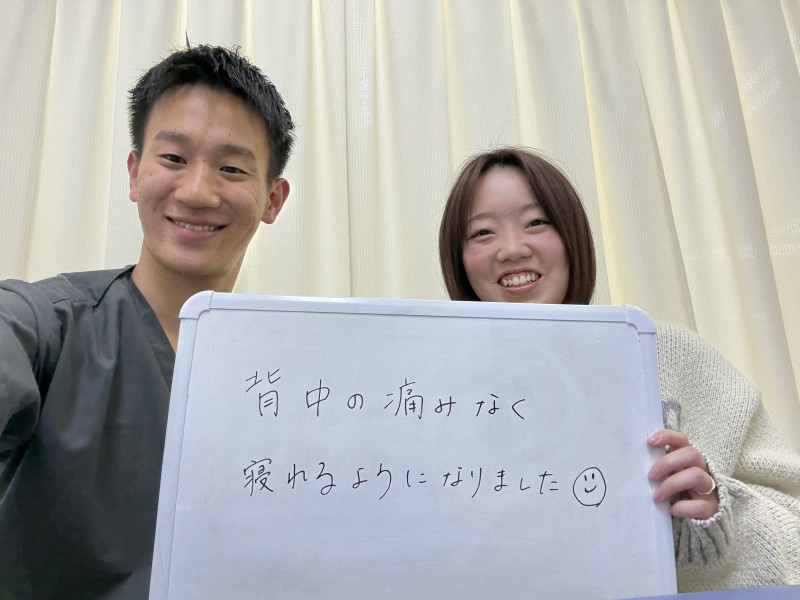 背中の痛みなく
寝れるようになりました